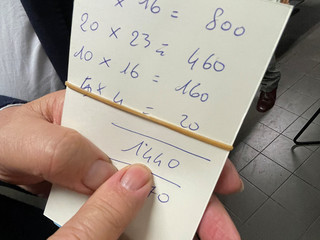 × 16 = 800
20 × 23 = 460
10 × 16 = 160
5 × 4 = 20
1440
70